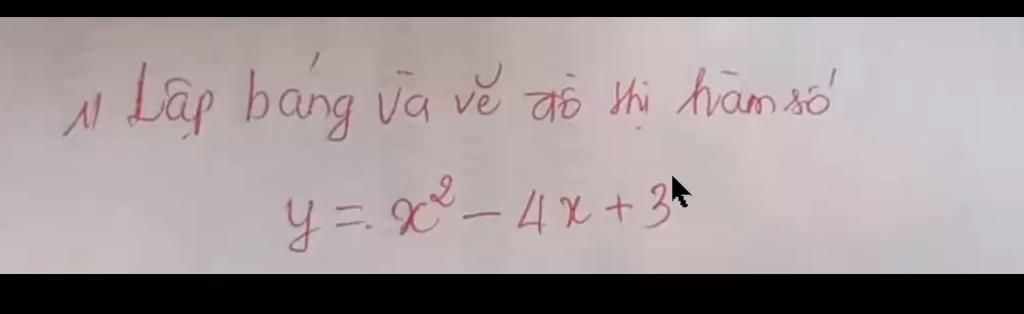 1) Lập bảng và vẽ đồ thị hàm số
y = x² - 4x + 3